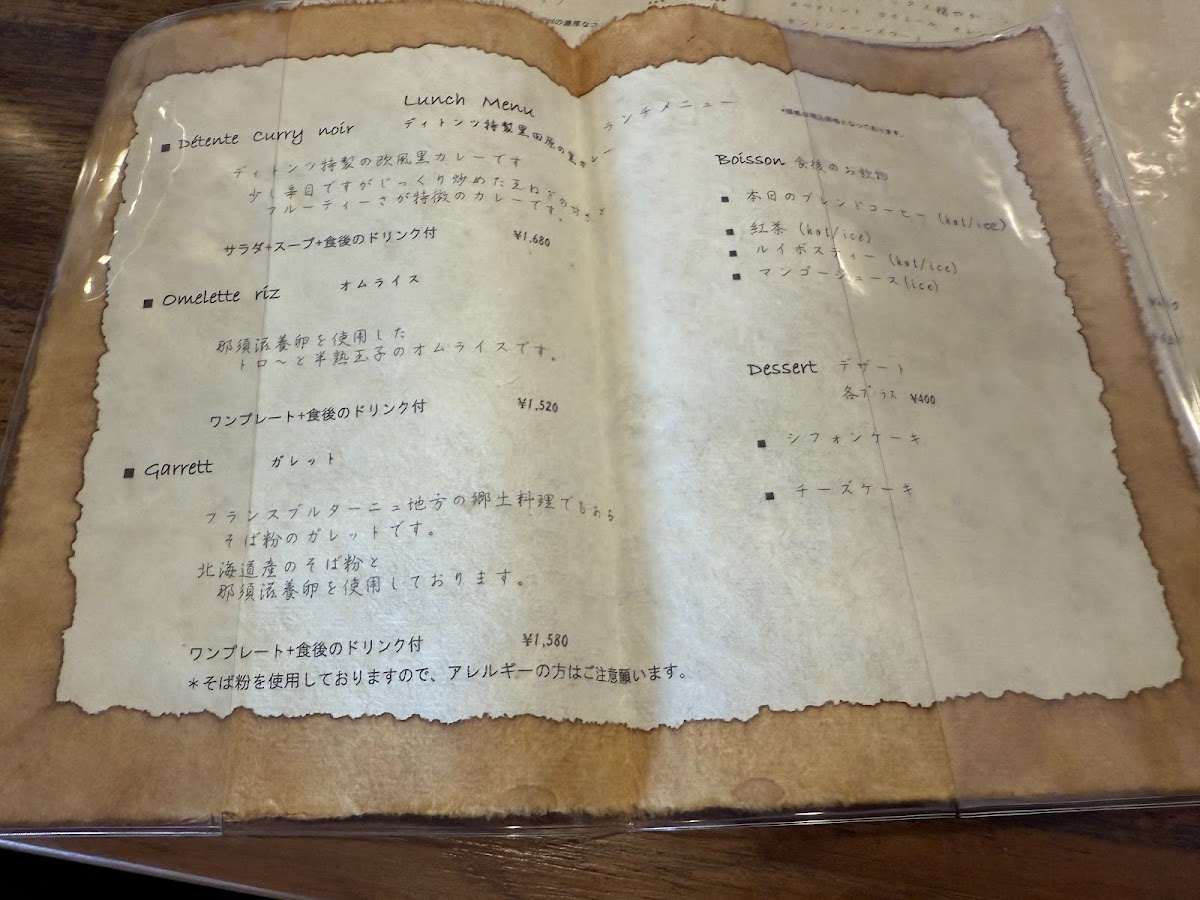 Lunch Menu ランチメニュー
■ Détente Curry noir ディトンツ特製黒田原の黒カレー
ディトンツ特製の欧風黒カレーです
少し辛目ですがじっくり炒めた玉ねぎの甘さと
フルーティーさが特徴のカレーです。
サラダ+スープ+食後のドリンク付 ¥1,680
■ Omelette riz オムライス
那須滋養卵を使用した
トロ～と半熟玉子のオムライスです。
ワンプレート+食後のドリンク付 ¥1,520
■ Garrett ガレット
フランスブルターニュ地方の郷土料理でもある
そば粉のガレットです。
北海道産のそば粉と
那須滋養卵を使用しております。
ワンプレート+食後のドリンク付 ¥1,580
＊そば粉を使用しておりますので、アレルギーの方はご注意願います。
*価格は税込価格となっております。
Boisson 食後のお飲物
■ 本日のブレンドコーヒー (hot/ice)
■ 紅茶 (hot/ice)
■ ルイボスティー (hot/ice)
■ マンゴージュース(ice)
Dessert デザート
各プラス ¥400
■ シフォンケーキ
■ チーズケーキ